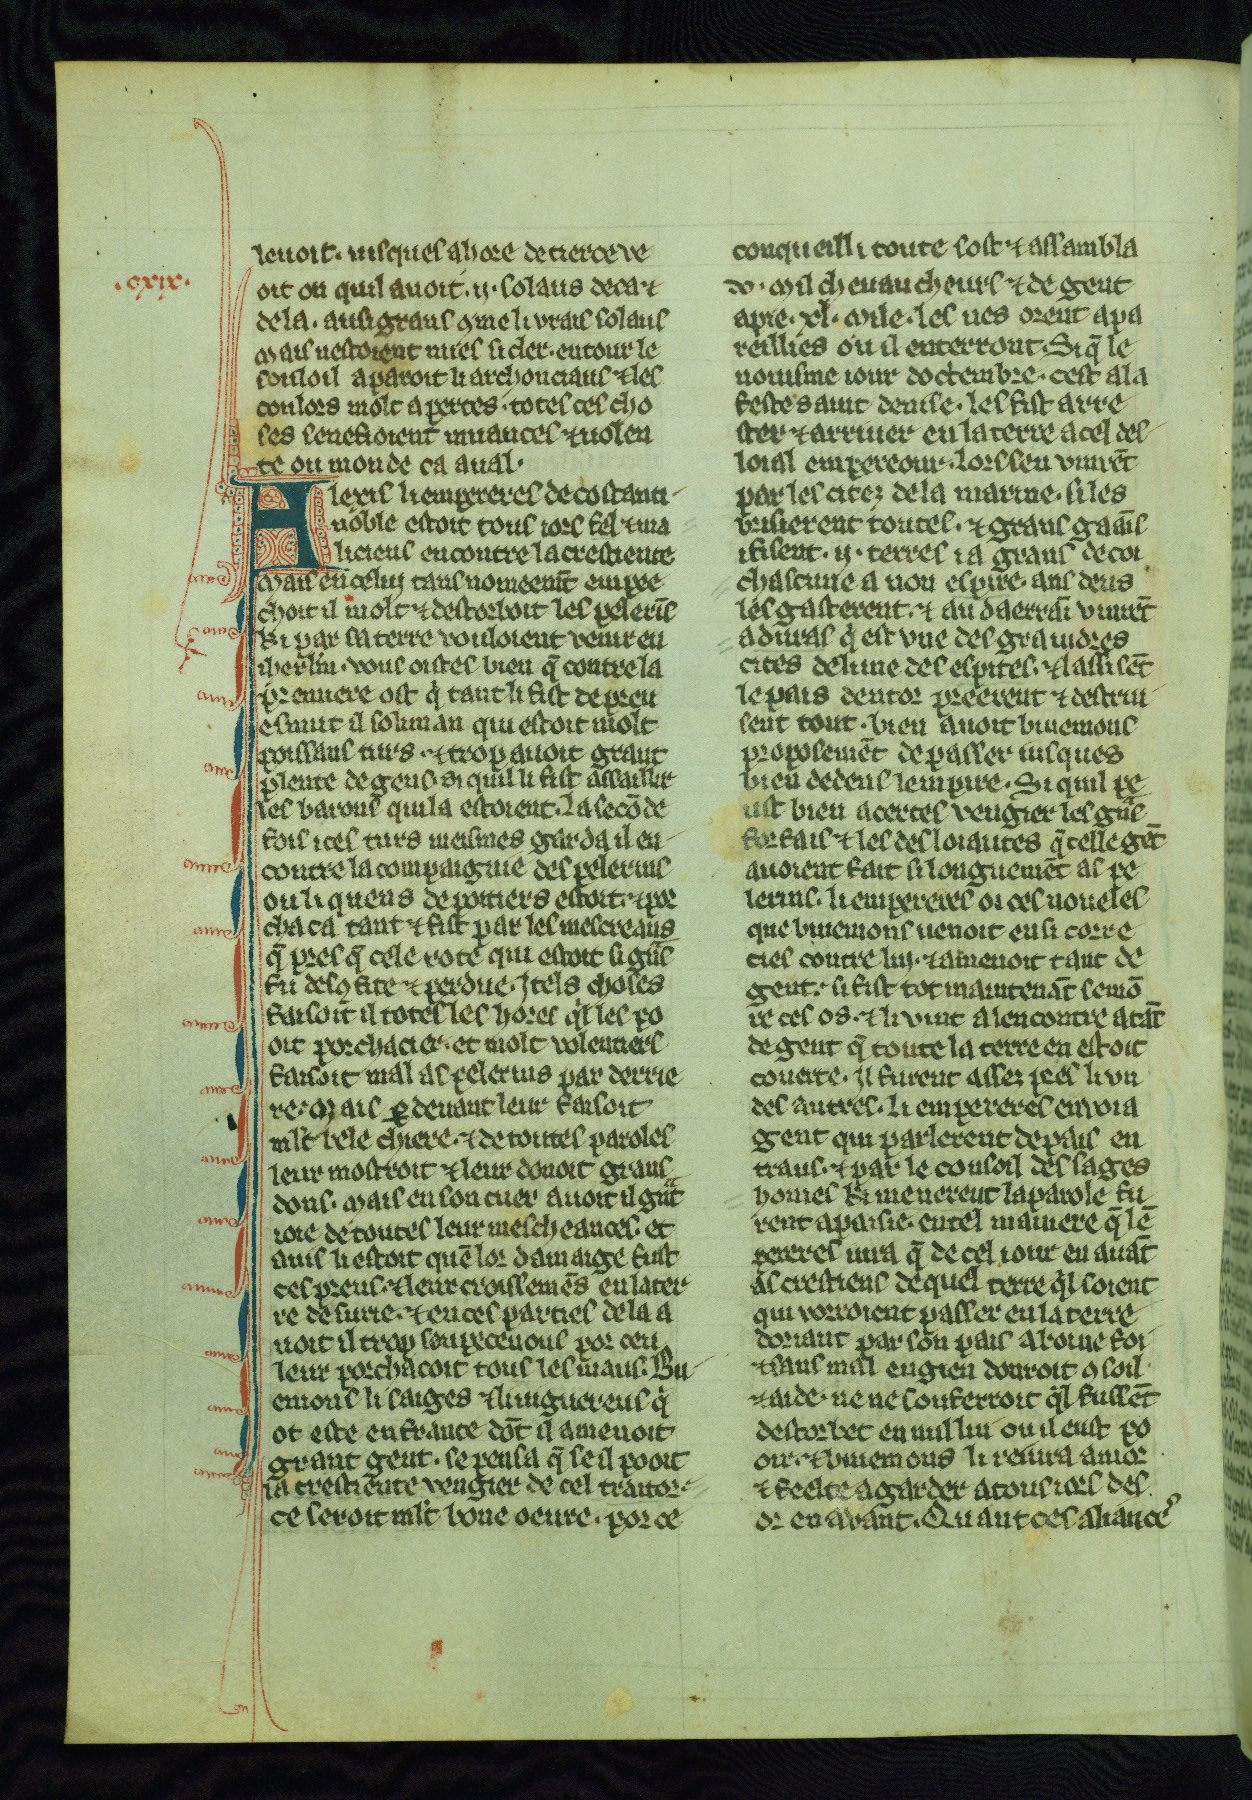 .cxix.
levoit. iusques a hore de tierce ve
oit on quil avoit .ii. solaus deca ⁊
de la. ausi grans ꝯme li vrais solaus
Mais nestoient mies si cler. entour le
souloil aparoit li archonciaus ⁊ les
coulors molt apertes. totes ces cho
ses senefioient muances ⁊ nolen
te ou monde ca aual.
Alexis li empereres de costanti
noble estoit tous iors fel ⁊ ma
licieus encontre la crestiente
Mais en celui tans nomeemt̄ empee
choit il molt ⁊ destorboit les peleris̄
ki par sa terre vouloient venir en
iherlm̄. vous oistes bien q̄ contre la
premiere ost q̄ tant li fist de preu
esmut il soliman qui estoit molt
poissans turs. ⁊ trop avoit grant
plente de gens. si quil li fist assaillir
les barons qui la estoient. La secōde
fois ices turs meismes garda il en
contre la compaignie des pelerins
ou li quens de poitiers estoit. ⁊ por
chaca tant ⁊ fist par les mescreans
q̄ pres q̄ cele rote qui estoit si gn̄s
fu desꝯfite ⁊ perdue. Itels choses
faisoit il totes les hores q̄l les po
oit porchacier. et molt volentiers
faisoit mal as pelerins par derrie
re. Mais ꝑ devant leur faisoit
ml̄t bele chiere. ⁊ de toutes paroles
leur mostroit ⁊ leur donoit grans
dons. Mais en son cuer avoit il gn̄t
ioie de toutes leur mescheances. et
auis li estoit quē lor damaige fust
ces preus. ⁊ leur croissemēs en la ter
re de surie. ⁊ en ces parties de la a
voit il trop soupecenous por ceu
leur porchacoit tous les maus. Bu
emons li saiges ⁊ li uiguereus q̄
ot este en france dōt il amenoit
grant gent. se pensa q̄ se il pooit
la crestiente vengier de cel traitor.
ce seroit ml̄t bone oeure. por ce
conqueilli toute sost ⁊ assambla
.v. Mil chevaucheurs ⁊ de gent
a pie .xl. Mile. les nes orent apa
reillies ou il enterront. Si q̄ le
nouisme iour doctembre. cest a la
feste saint denise. les fist arre
ster ⁊ arriuer en la terre a cel des
loial empereour. Lors sen vinrēt
par les citez de la marine. si les
brisierent toutes. ⁊ grans gaais̄
i fisent. .ii. terres i a grans de coi
chascune a non espire. ans deus
les gasterent. ⁊ au daerrai vinrēt
a duras q̄ est vne des graindres
cites de lune des espires. ⁊ lassisēt
le pais dentor preerent ⁊ destrui
sent tout. bien avoit buiemons
proposemēt de passer iusques
bien dedens lempire. Si quil pe
ust bien acertes vengier les gn̄s
forfais ⁊ les desloiautes q̄ celle gēt
avoient fait si longuemēt as pe
lerins. li empereres oi ces noueles
que buiemons uenoit ensi corre
cies contre lui. ⁊ amenoit tant de
gent. si fist tot maintenāt semō
re ces os. ⁊ li vint a lencontre a tāt
de gent q̄ toute la terre en estoit
couerte. Il furent assez pres li vn
des autres. li empereres envoia
gent qui parlerent de pais en
traus. ⁊ par le consoil des sages
homes ki menerent la parole fu
rent apaisie. en tel maniere q̄ lē
pereres iura q̄ de cel iour en auāt
as crestiens de quel terre q̄l soient
qui vorroient passer en la terre
doriant par son pais a bone foi
⁊ sans mal engien donroit ꝯsoil
⁊ aide. ne ne soufferroit q̄l fussēt
destorbet en nul liu ou il eust po
oir. ⁊ buiemons li reiura amor
⁊ feelte a garder a tous iors des
or en avant. Quant ces aliance